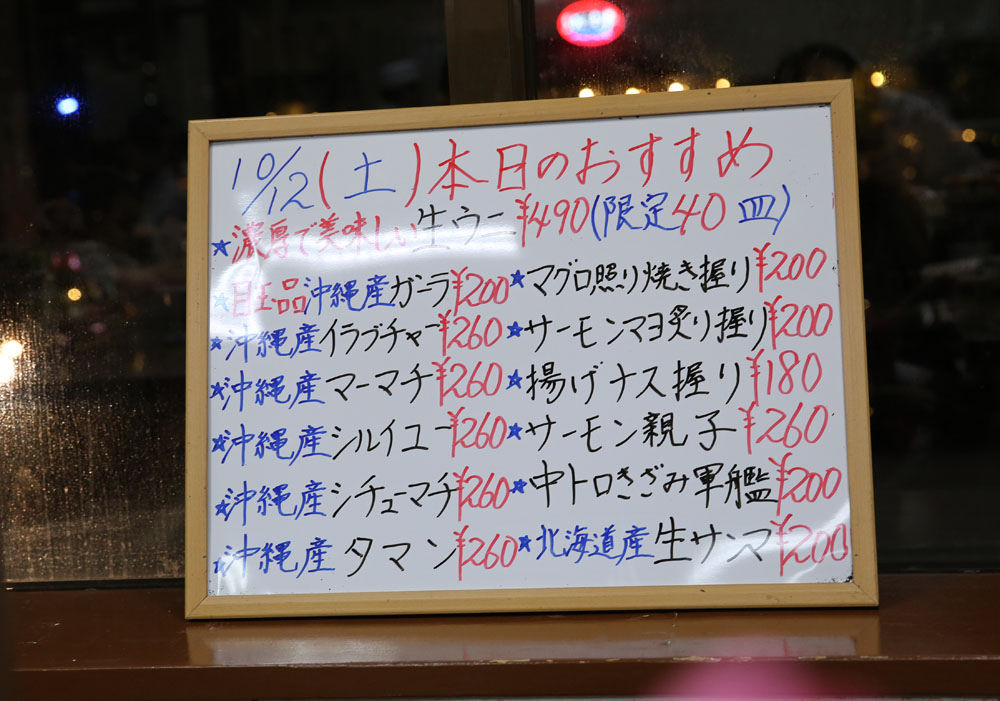 10/12(土)本日のおすすめ
★濃厚で美味しい生ウニ¥490(限定40皿)
★目玉品沖縄産ガーラ¥200
★沖縄産イラブチャー¥260
★沖縄産マーマチ¥260
★沖縄産シルイユー¥260
★沖縄産シチューマチ¥260
★沖縄産タマン¥260
★マグロ照り焼き握り¥200
★サーモンマヨ炙り握り¥200
★揚げナス握り¥180
★サーモン親子¥260
★中トロきざみ軍艦¥200
★北海道産生サンマ¥200